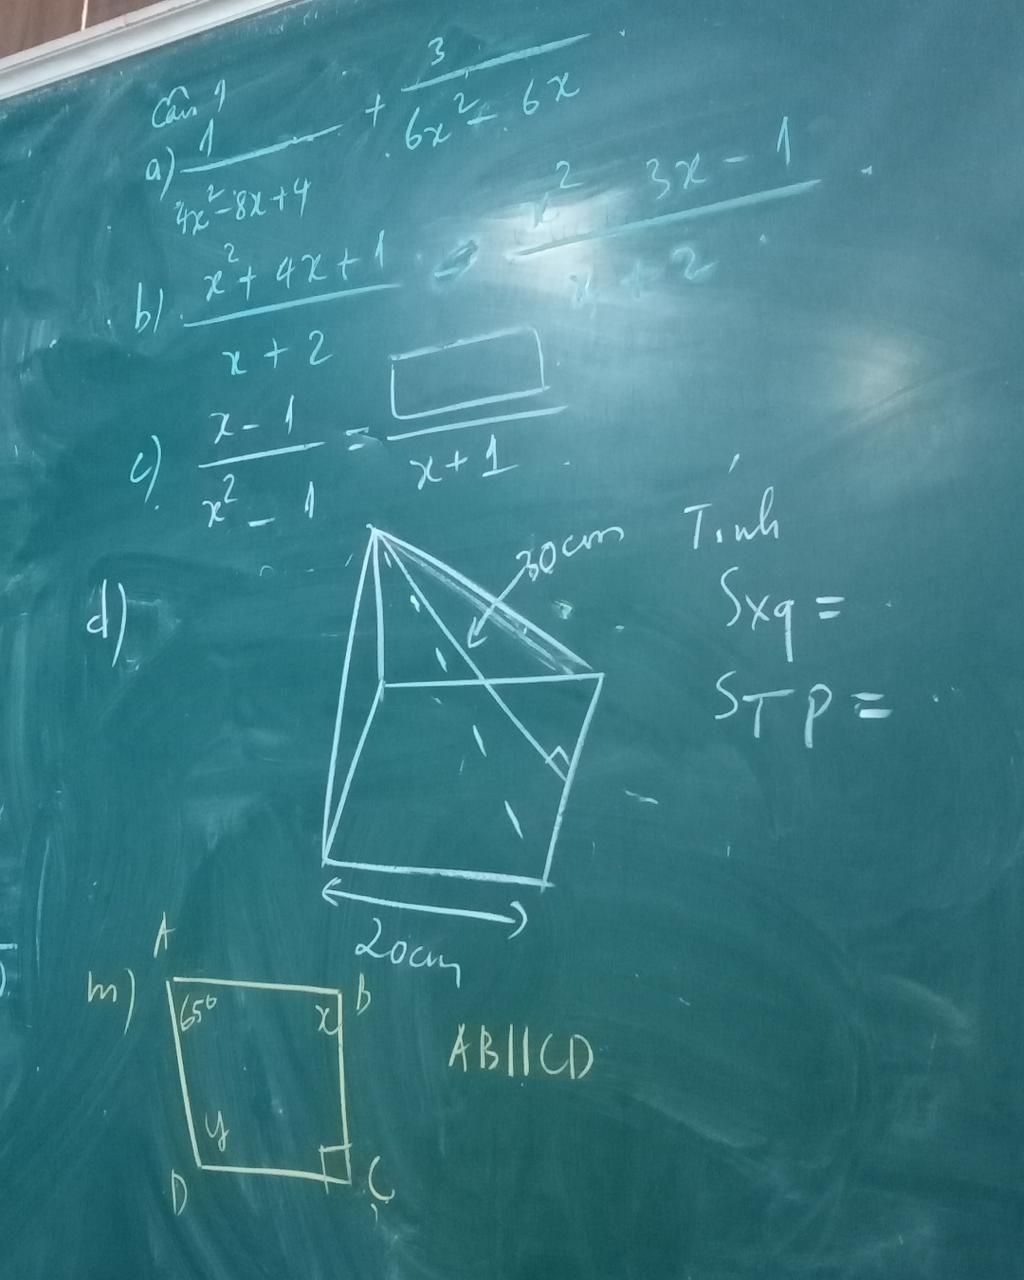 Câu 1
a) \frac{1}{4x^2-8x+4} + \frac{3}{6x^2-6x}
b) \frac{x^2+4x+1}{x+2} - \frac{x^2-3x-1}{x+2}
c) \frac{x-1}{x^2-1} = \frac{□}{x+1}
d) 30cm Tính
Sxq =
STP =
20cm
m) A B
65° x
AB//CD
y
D C